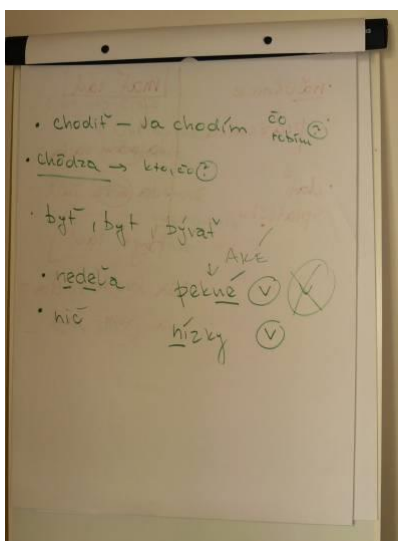 • chodiť – Ja chodím čo robím?
• chôdza → kto, čo?
• byť, byt, bývať
AKÉ
• nedeľa pekné V V
• nič nízky V